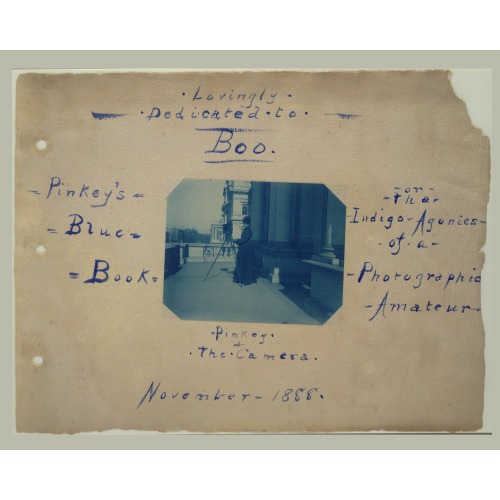 · Lovingly ·
· Dedicated · to ·
Boo.
- Pinkey's -
= Blue =
= Book =
- or -
- The -
- Indigo - Agonies -
- of - a -
- Photographic
- Amateur -
· Pinkey ·
+
· The · Camera .
November - 1888 .